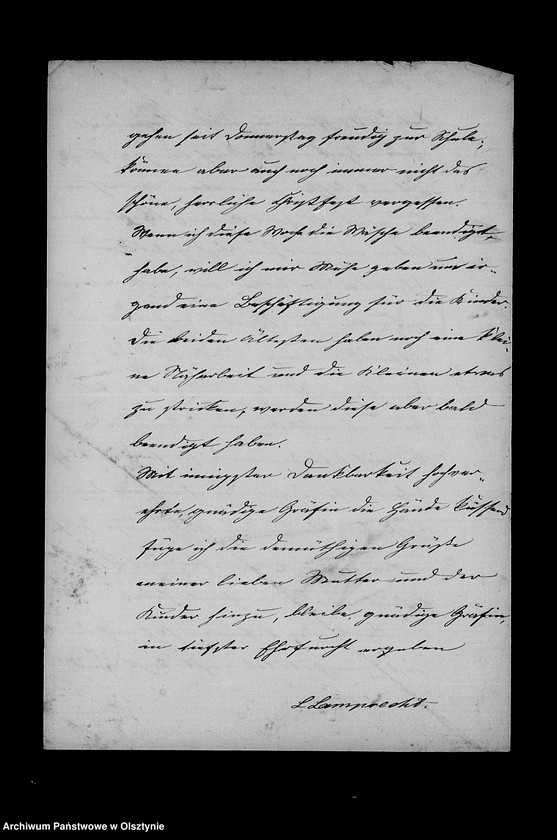 gehen seit Donnerstag freudig zur Schule,
können aber auch noch immer nicht das
schöne, herrliche Christfest vergessen.
Wenn ich diese Woche die Wäsche beendigt
habe, will ich mir Mühe geben um ir-
gend eine Beschäftigung für die Kinder.
Die beiden Ältesten haben noch eine klei-
ne Näharbeit und die Kleinen etwas
zu stricken, werden diese aber bald
beendigt haben.
Mit innigster Dankbarkeit hochver-
ehrte, gnädige Gräfin die Hände küssend
füge ich die demüthigen Grüße
meiner lieben Mutter und der
Kinder hinzu, bleibe gnädige Gräfin,
in tiefster Ehrfurcht ergeben
L Lamprecht.
Archiwum Państwowe w Olsztynie